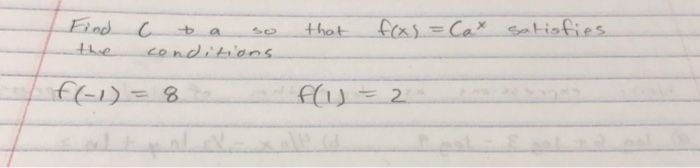 Find C + a so that f(x) = Ca^x satisfies
the conditions
f(-1) = 8 f(1) = 2